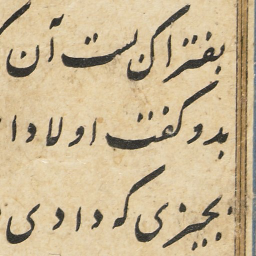 بفتراک بست آن
بدو کفت اولاد ا
بچیزی که دادی